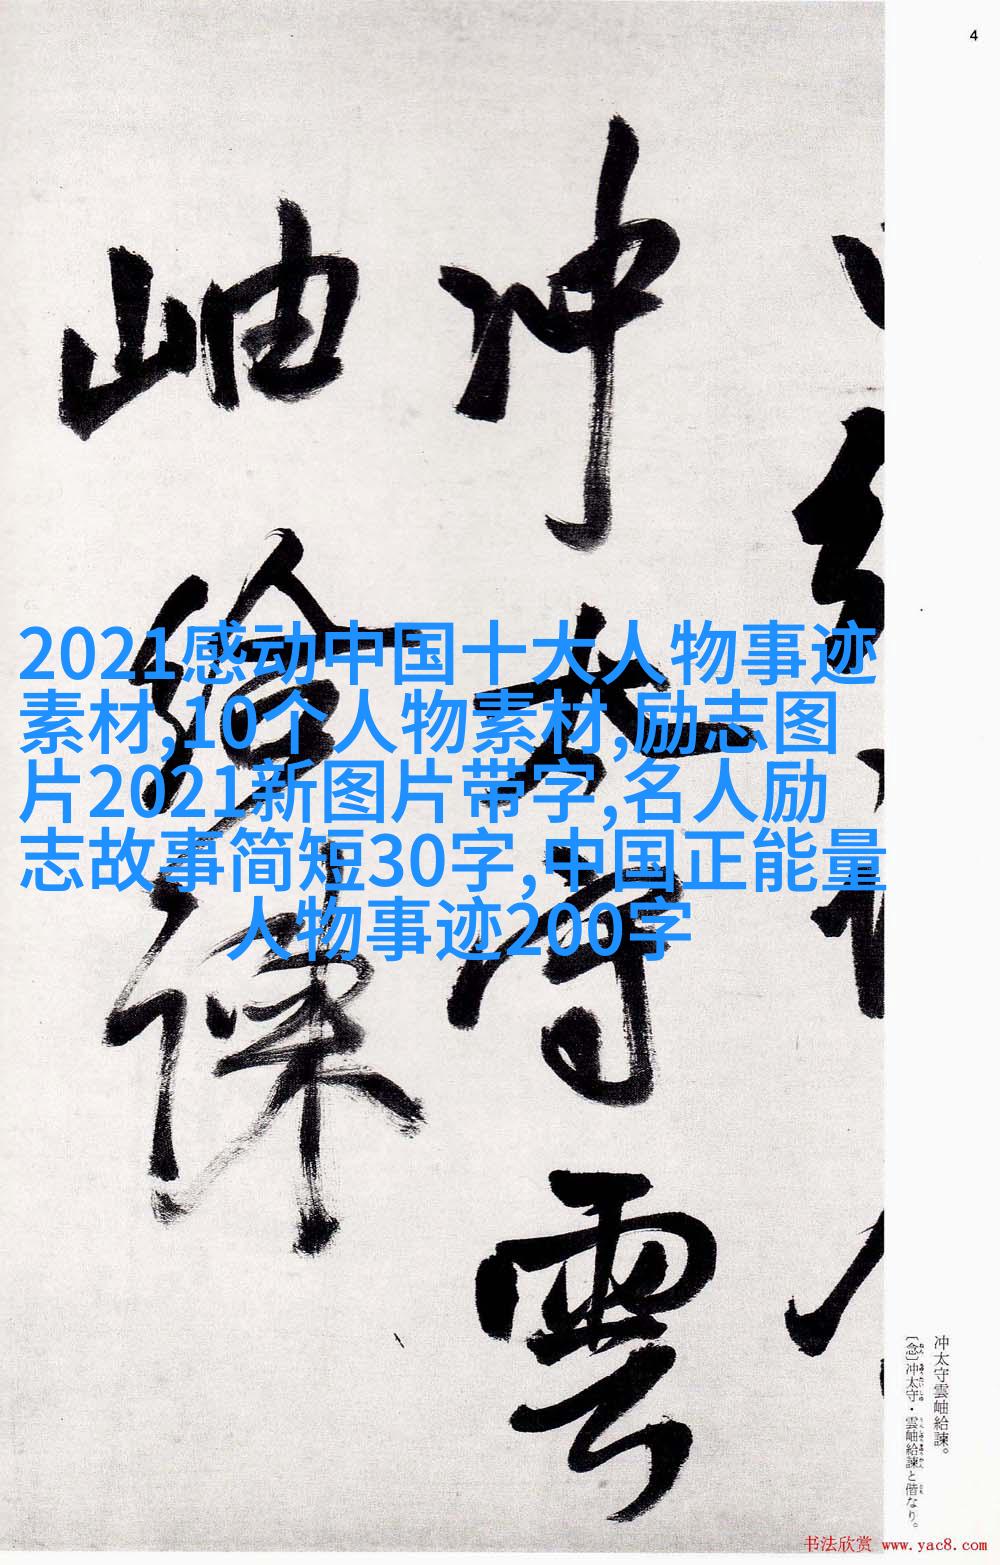 4
冲太守雲
岫給諫
2021感动中国十大人物事迹
素材,10个人物素材,励志图
片2021新图片带字,名人励
志故事简短30字,中国正能量
人物事迹200字
冲太守雲岫給諫。
〔念〕冲太守・雲岫給諫と偕なり。
书法欣赏 www.yac8.com